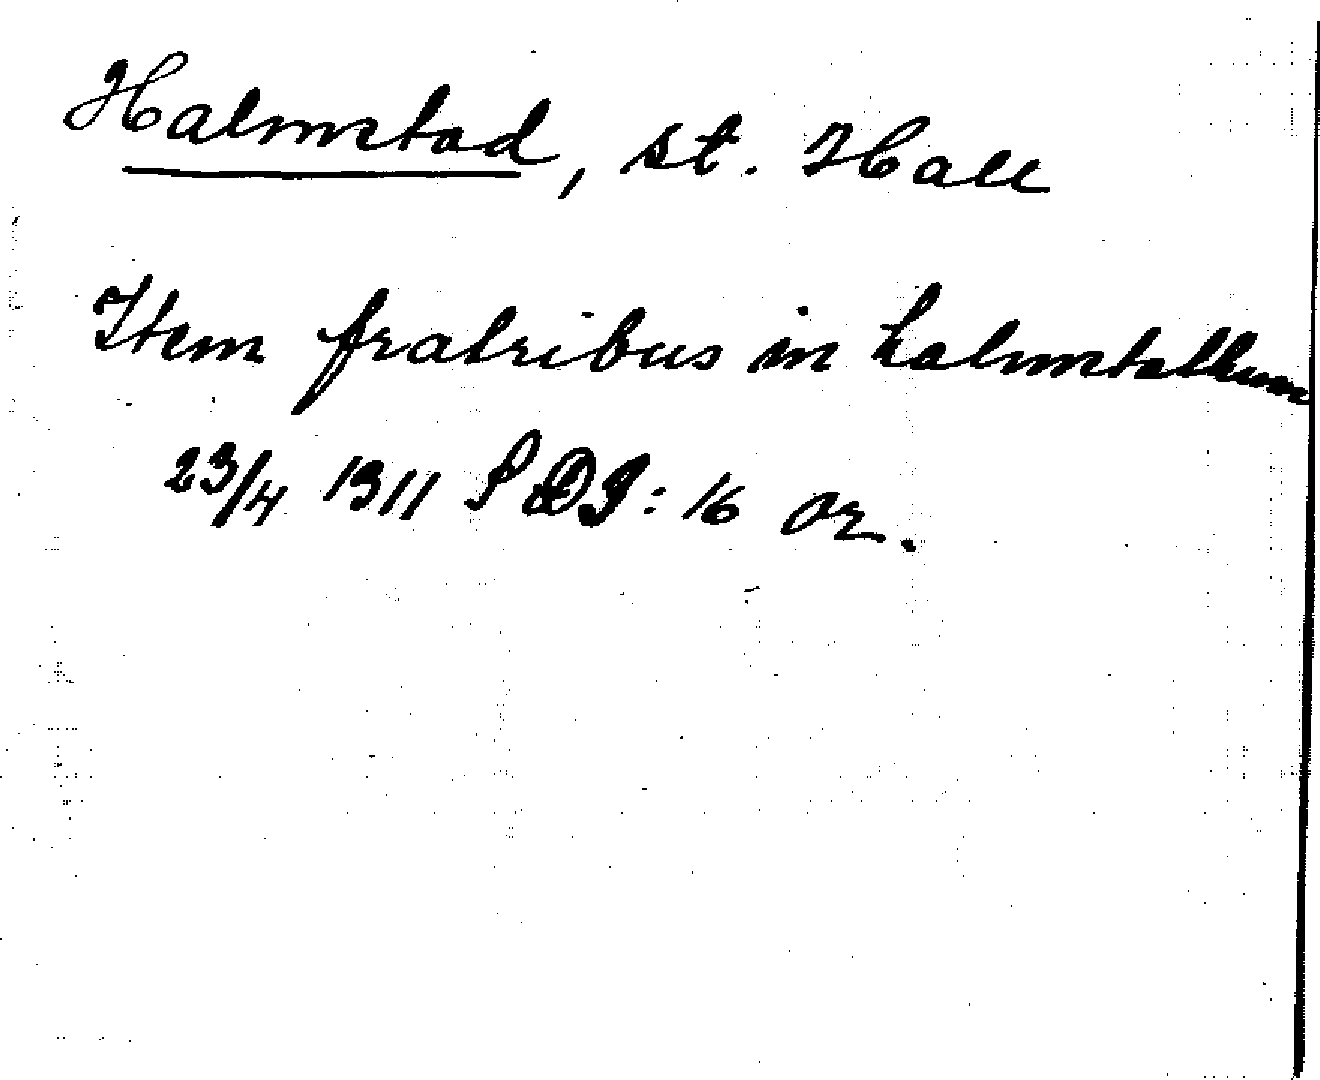 Halmstad, st. Hall
Item fratribus in halmstathum
23/4 1311 SDS: 16 or.